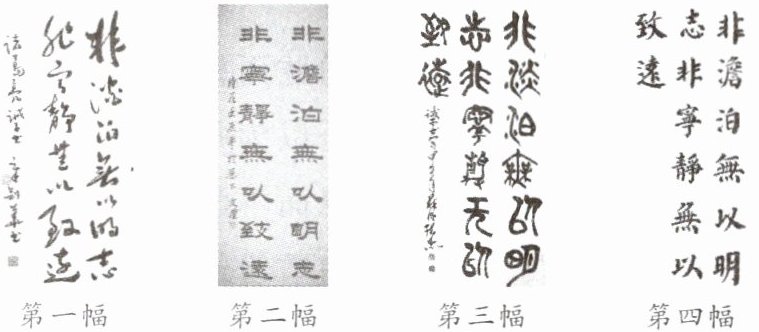 非澹泊無以明志
非宁静無以致遠
諸葛亮誡子书
第一幅
非澹泊無以明志
非寧靜無以致遠
第二幅
非淡泊無以明
志非寧静无以
致遠
第三幅
非澹泊無以明
志非寧靜無以
致遠
第四幅